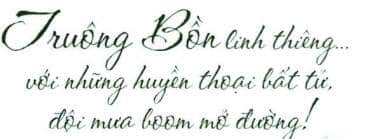 Truông Bồn linh thiêng...
với những huyền thoại bất tử,
đội mưa boom mở đường!